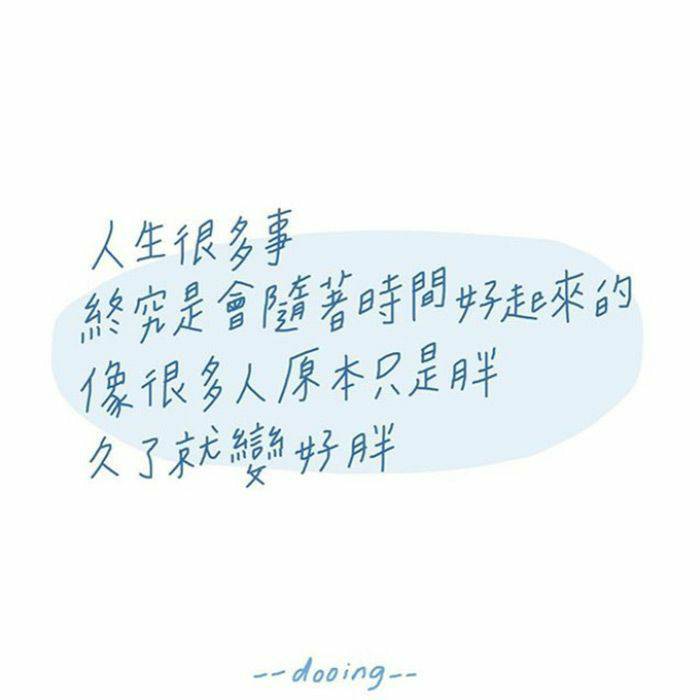 人生很多事
終究是會隨著時間好起來的
像很多人原本只是胖
久了就變好胖
--dooing--